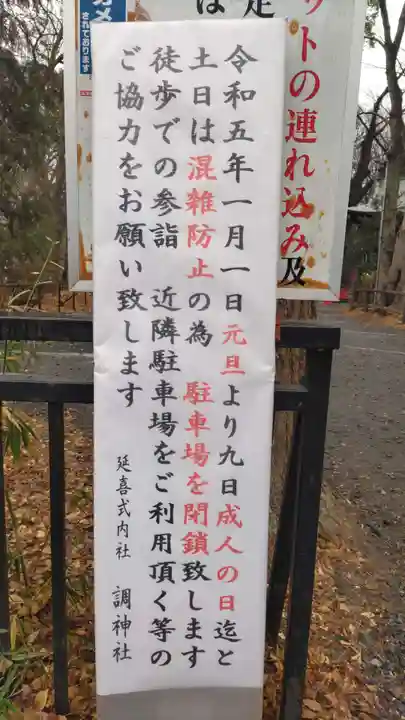 令和五年一月一日元旦より九日成人の日迄と
土日は混雑防止の為 駐車場を閉鎖致します
徒歩での参詣 近隣駐車場をご利用頂く等の
ご協力をお願い致します
延喜式内社 調神社
ットの連れ込み及
は足
カメ
されております